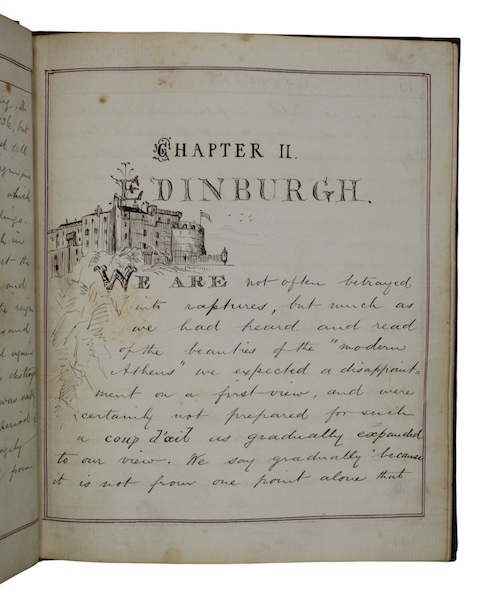 CHAPTER II.
EDINBURGH.
WE ARE not often betrayed
into raptures, but much as
we had heard and read
of the beauties of the "modern
Athens" we expected a disappoint-
ment on a first view, and were
certainly not prepared for such
a coup d'œil as gradually expanded
to our view. We say gradually because
it is not from one point alone that